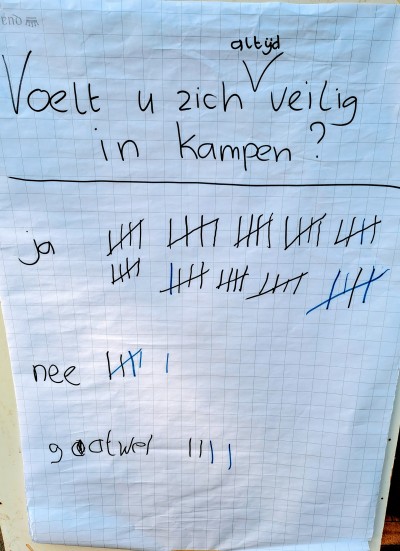 altijd
Voelt u zich veilig
in Kampen?
ja
nee
gaat wel